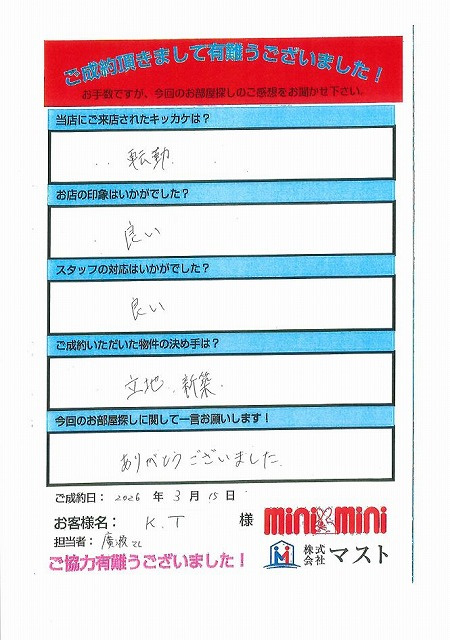 ご成約頂きまして有難うございました！
お手数ですが、今回のお部屋探しのご感想をお聞かせ下さい。
当店にご来店されたキッカケは？
転勤
お店の印象はいかがでした？
良い
スタッフの対応はいかがでした？
良い
ご成約いただいた物件の決め手は？
立地、新築
今回のお部屋探しに関して一言お願いします！
ありがとうございました
ご成約日： 2026 年 3 月 15 日
お客様名： K.T 様
担当者：
ご協力有難うございました！
mini mini
株式会社 マスト